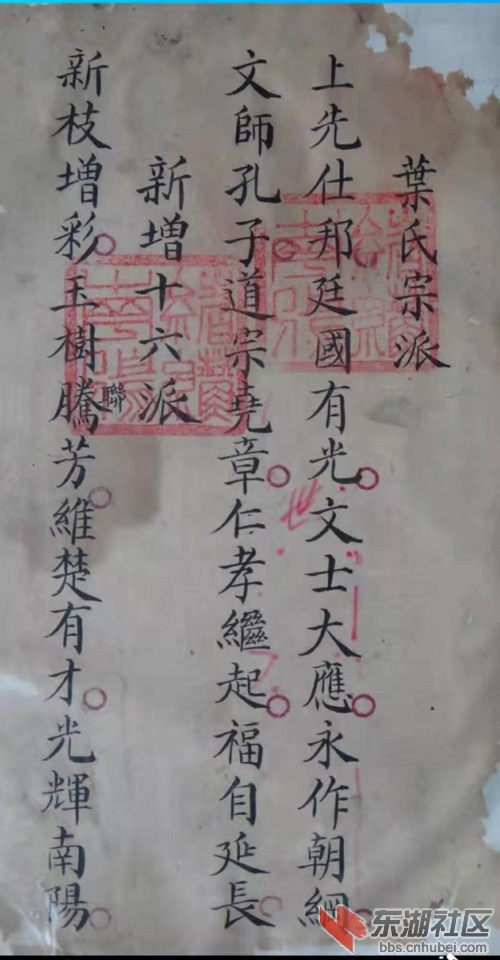 葉氏宗派
上先仕邦廷國有光文士大應永作朝綱
文師孔子道宗堯章仁孝繼起福自延長
新增十六派
新枝增彩玉樹騰芳維楚有才光輝南陽
聯
世
东湖社区
bbs.cnhubei.com